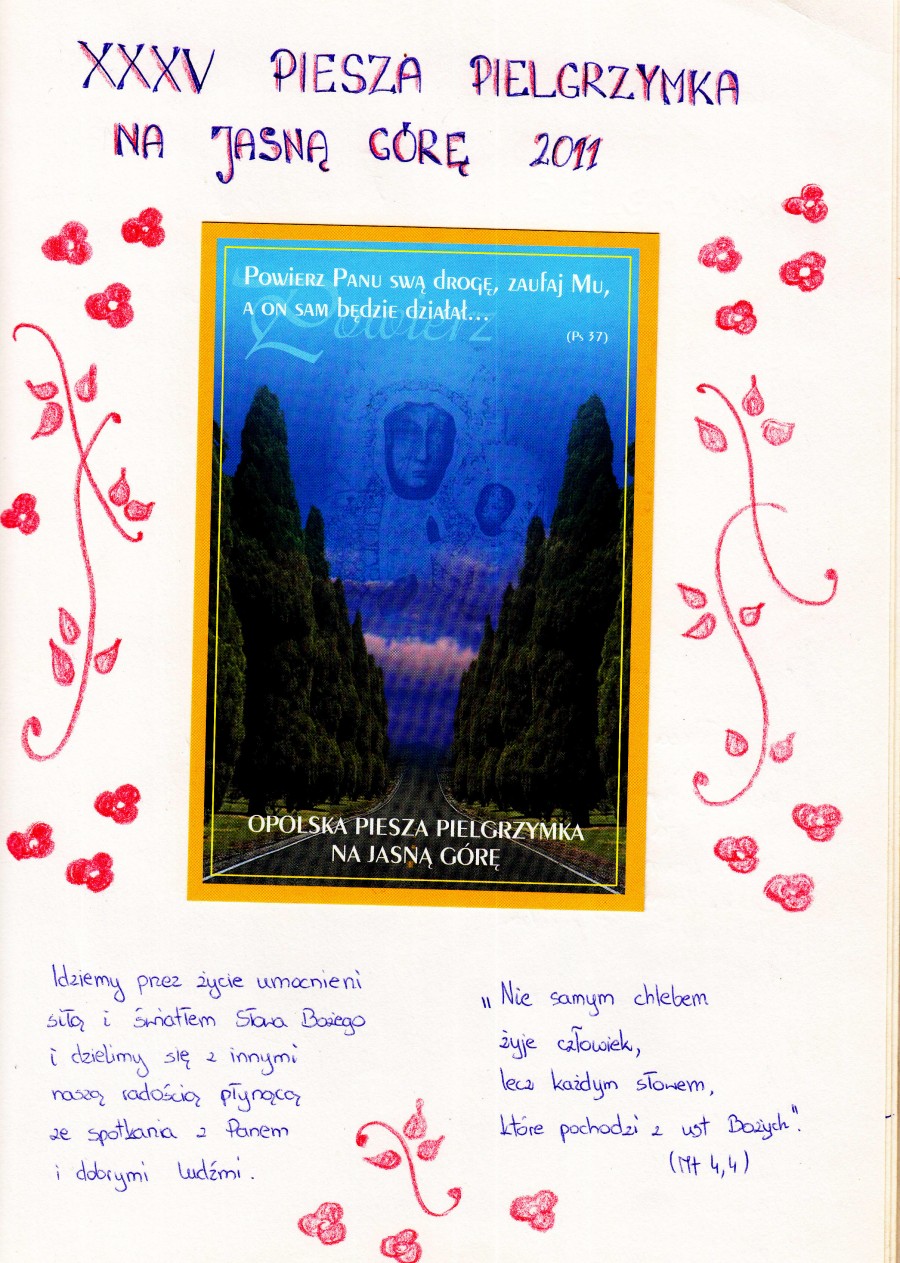 XXXV PIESZA PIELGRZYMKA
NA JASNĄ GÓRĘ 2011
Powierz
Powierz Panu swą drogę, zaufaj Mu,
a on sam będzie działał...
(Ps 37)
OPOLSKA PIESZA PIELGRZYMKA
NA JASNĄ GÓRĘ
Idziemy przez życie umocnieni
siłą i światłem Słowa Bożego
i dzielimy się z innymi
naszą radością płynącą
ze spotkania z Panem
i dobrymi ludźmi.
„Nie samym chlebem
żyje człowiek,
lecz każdym słowem,
które pochodzi z ust Bożych".
(Mt 4,4)